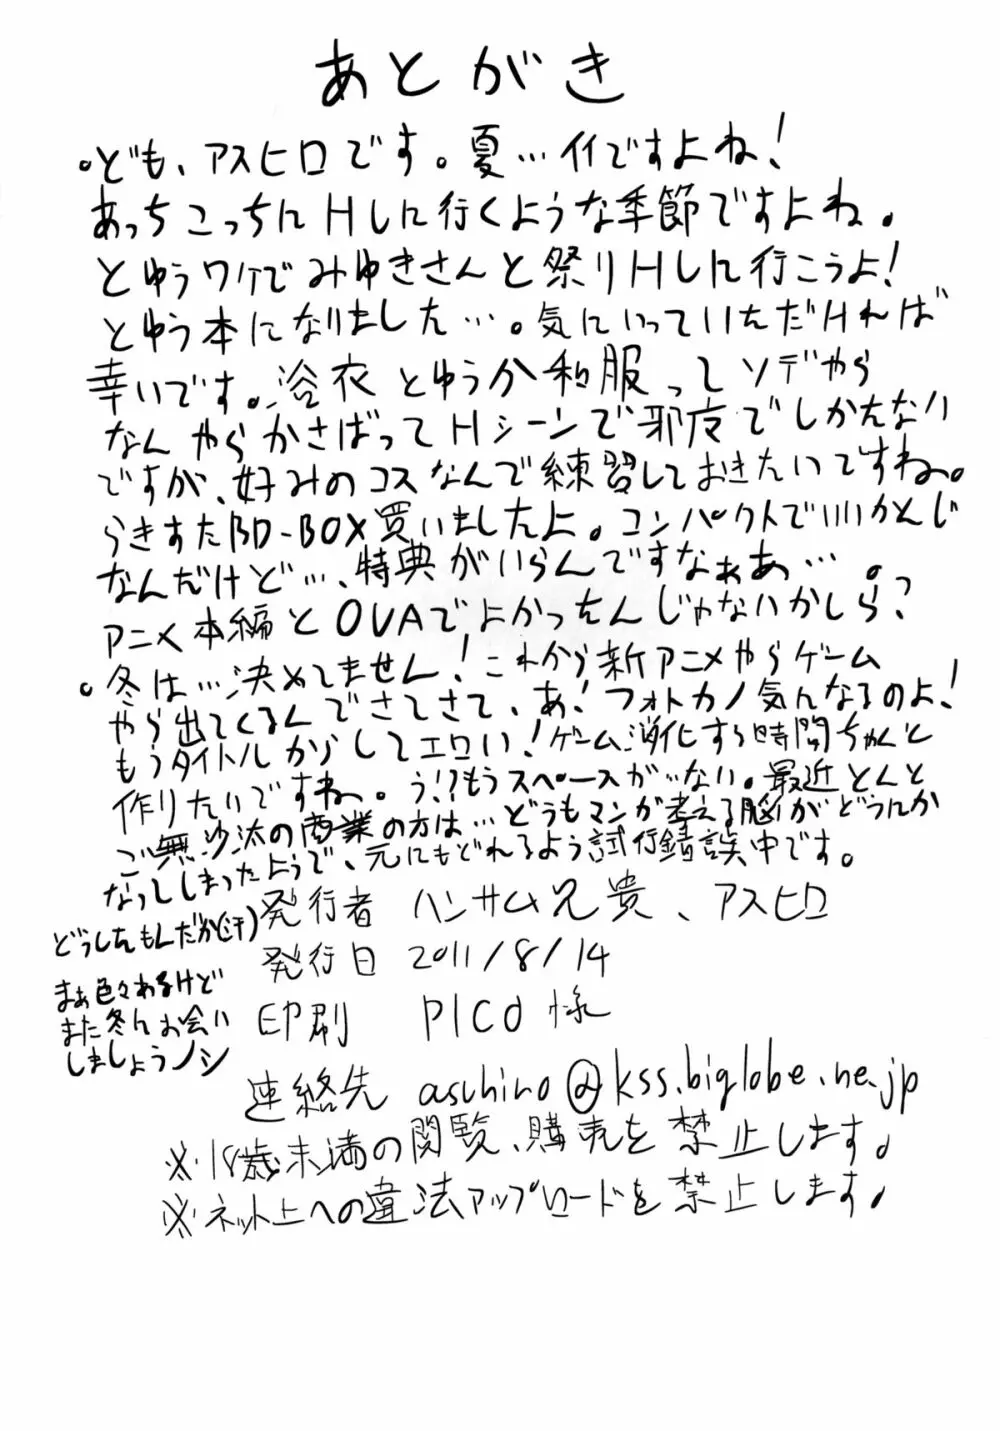 あとがき
・ども、アスヒロです。夏…イイですよね！
あっちこっちにHしに行くような季節ですよね。
とゆうワケでみゆきさんと祭りHしに行こうよ！
とゆう本になりました…。気にいっていただければ
幸いです。浴衣とゆうか和服ってソデやら
なんやらかさばってHシーンで邪魔でしかたない
ですが、好みのコスなんで練習しておきたいですね。
らきすたBD-BOX買いましたよ。コンパクトでいいかんじ
なんだけど…、特典がいらんですなぁあ…。
アニメ本編とOVAでよかったんじゃないかしら？
・冬は…決めてません！これから新アニメやらゲーム
やら出てくるんでさてさて、あ！フォトカノ気になるのよ！
もうタイトルからしてエロい！ゲーム消化する時間ちゃんと
作りたいですね。う!?もうスペースがいない。最近とんと
ご無沙汰の商業の方は…どうもマンガ考える脳がどうにか
なってしまったようで、元にもどれるよう試行錯誤中です。
どうしたもんだか(汗)
まぁ色々あるけど
また冬にお会い
しましょうノシ
発行者　ハンサム兄貴、アスヒロ
発行日　2011/8/14
印刷　PICO様
連絡先　aschiro@kss.biglobe.ne.jp
※18歳未満の閲覧、購売を禁止します。
※ネット上への違法アップロードを禁止します。